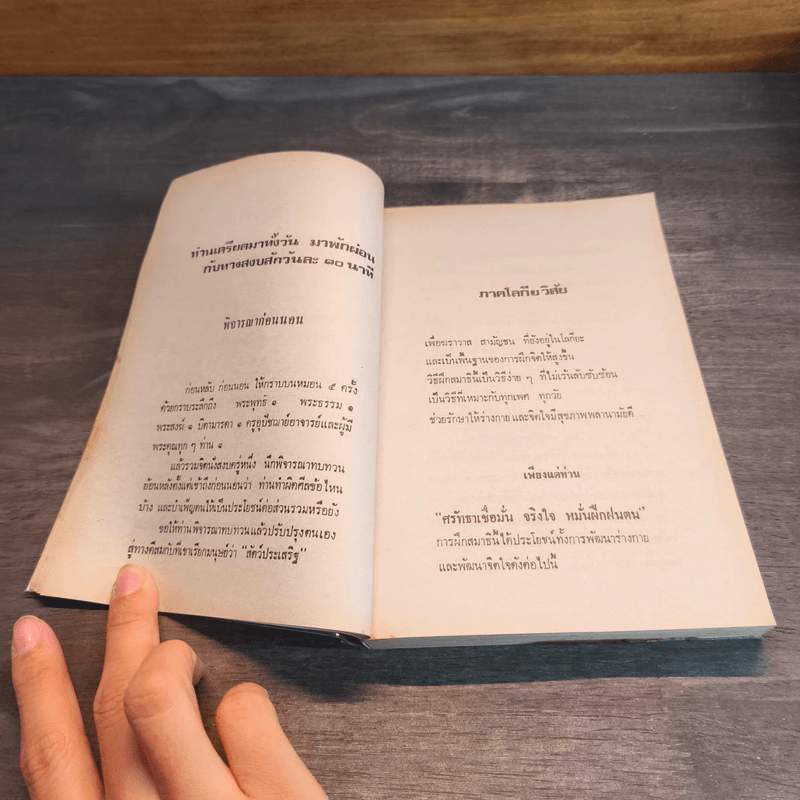 ท่านเครียดมาทั้งวัน มาพักผ่อน
กับทางสงบสักวันละ ๑๐ นาที
พิจารณาก่อนนอน
ก่อนหลับ ก่อนนอน ให้กราบบนหมอน ๕ ครั้ง
ด้วยกราบระลึกถึง พระพุทธ ๑ พระธรรม ๑
พระสงฆ์ ๑ บิดามารดา ๑ ครูอุปัชฌาย์อาจารย์และผู้มี
พระคุณทุก ๆ ท่าน ๑
แล้วรวมจิตนั่งสงบครู่หนึ่ง นึกพิจารณาทบทวน
ย้อนหลังตั้งแต่เช้าถึงก่อนนอนว่า ท่านทำผิดศีลข้อไหน
บ้าง และบำเพ็ญตนให้เป็นประโยชน์ต่อส่วนรวมหรือยัง
ขอให้ท่านพิจารณาทบทวนแล้วปรับปรุงตนเอง
สู่ทางดีสมกับที่เขาเรียกมนุษย์ว่า "สัตว์ประเสริฐ"
ภาคโลกียวิสัย
เพื่อฆราวาส สามัญชน ที่ยังอยู่ในโลกียะ
และเป็นพื้นฐานของการฝึกจิตให้สูงขึ้น
วิธีฝึกสมาธินี้เป็นวิธีง่าย ๆ ที่ไม่เร้นลับซับซ้อน
เป็นวิธีที่เหมาะกับทุกเพศ ทุกวัย
ช่วยรักษาให้ร่างกาย และจิตใจมีสุขภาพพลานามัยดี
เพียงแต่ท่าน
"ศรัทธาเชื่อมั่น จริงใจ หมั่นฝึกฝนตน"
การฝึกสมาธินี้ได้ประโยชน์ทั้งการพัฒนาร่างกาย
และพัฒนาจิตใจดังต่อไปนี้